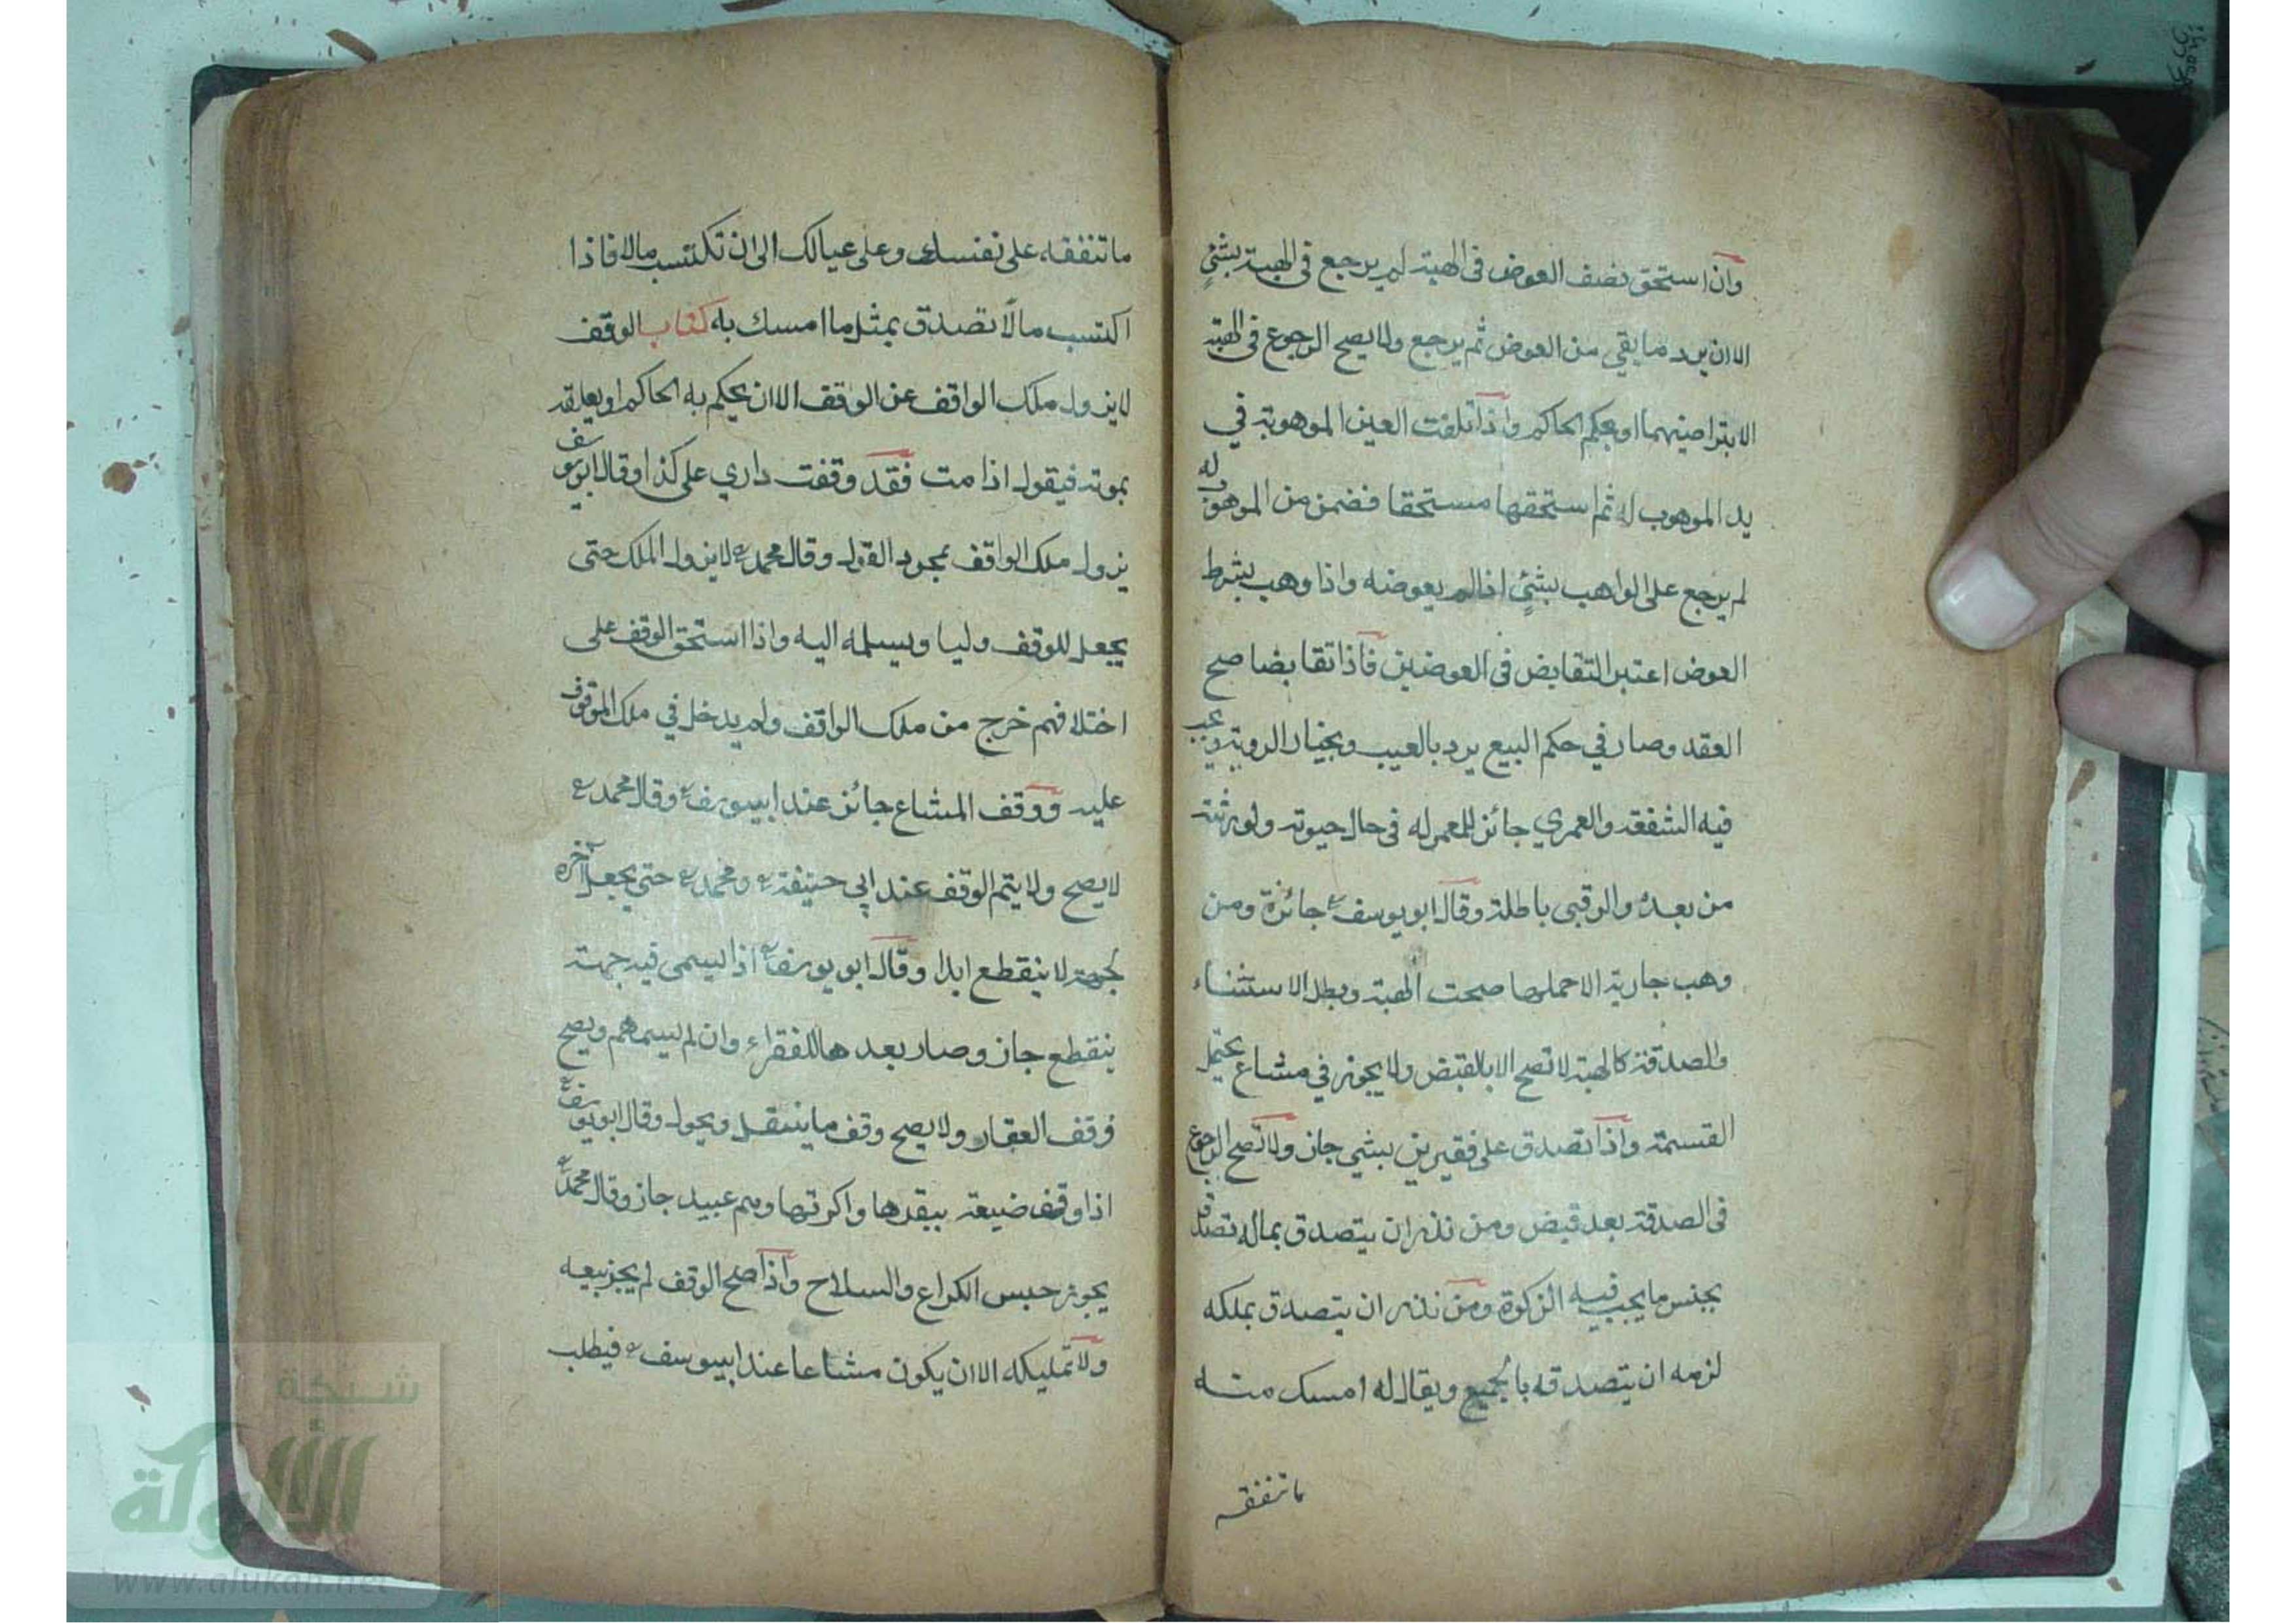 وان استحق نصف العوض في الهبة لم يرجع في الهبة بشئ
الا ان يرد ما بقي من العوض ثم يرجع ولا يصح الرجوع في الهبة
الا بتراضيهما او بحكم الحاكم واذا تلفت العين الموهوبة في
يد الموهوب له ثم استحقها مستحقا فضمن من الموهوب له
لم يرجع على الواهب بشئ اذا لم يعوضه واذا وهب بشرط
العوض اعتبر التقابض في العوضين فاذا تقابضا صح
العقد وصار في حكم البيع يرد بالعيب وبخيار الروية ويجب
فيه الشفعة والعمري جائز للمعمر له في حال حيوته ولورثته
من بعده والرقبى باطلة وقال ابو يوسف جائزة ومن
وهب جارية الا حملها صحت الهبة وبطل الاستثناء
والصدقة كالهبة لا تصح الا بالقبض ولا يجوز في مشاع يحتمل
القسمة واذا تصدق على فقيرين بشي جاز ولا تصح الرجوع
في الصدقة بعد قبض ومن نذر ان يتصدق بماله تصدق
بجنس ما يجب فيه الزكوة ومن نذر ان يتصدق بملكه
لزمه ان يتصدقه بالجميع ويقال له امسك منه
ما تنفقه
ما تنفقه على نفسك وعلى عيالك الى ان تكتسب مالا فاذا
اكتسب مالا تصدق بمثل ما امسك به كتاب الوقف
لا يزول ملك الواقف عن الوقف الا ان يحكم به الحاكم او يعلقه
بموته فيقول اذا مت فقد وقفت داري على كذا وقال ابو يوسف
يزول ملك الواقف بمجرد القول وقال محمد لا يزول الملك حتى
يجعل للوقف وليا ويسلمه اليه واذا استحق الوقف على
اختلافهم خرج من ملك الواقف ولم يدخل في ملك الموقوف
عليه ووقف المشاع جائز عند ابيوسف وقال محمد
لا يصح ولا يتم الوقف عند ابي حنيفة ومحمد حتى يجعل آخره
لجهة لا ينقطع ابدا وقال ابو يوسف اذا يسمى فيه جهة
ينقطع جاز وصار بعدها للفقراء وان لم يسمهم ويصح
وقف العقار ولا يصح وقف ما ينتقل ويحول وقال ابو يوسف
اذا وقف ضيعة ببقرها واكرتها وهم عبيد جاز وقال محمد
يجوز حبس الكراع والسلاح واذا صح الوقف لم يجز بيعه
ولا تمليكه الا ان يكون مشاعا عند ابيوسف فيطلب
شبكة
الألوكة
www.alukah.net